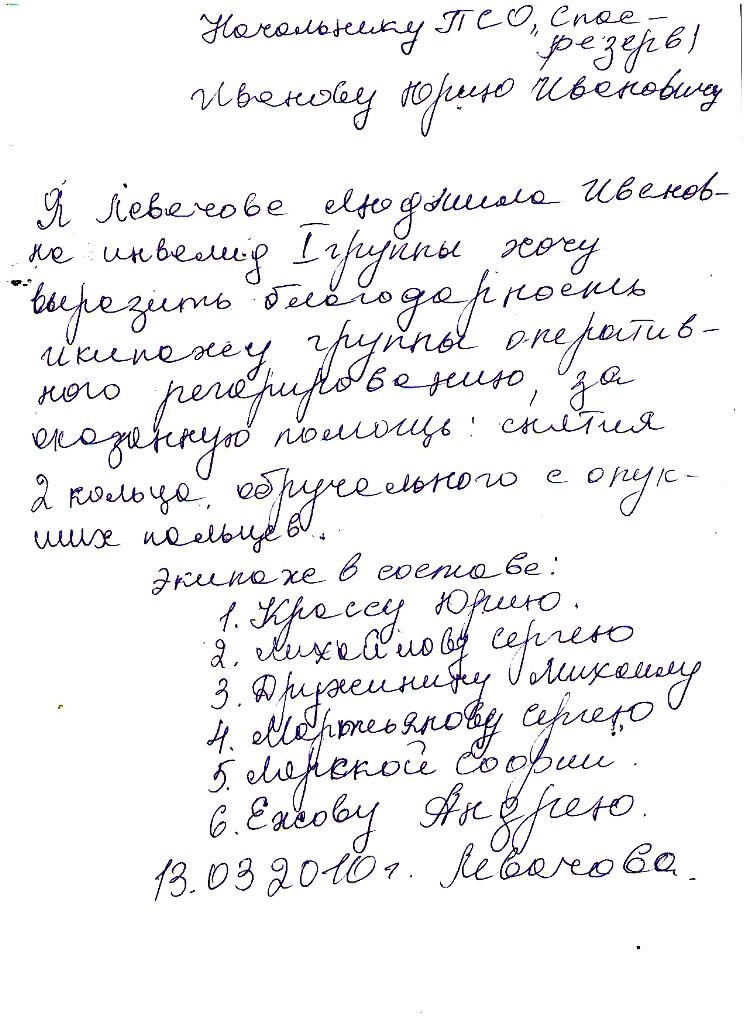 Начальнику ПСО „Спас-
резерв"
Иванову Юрию Ивановичу
Я Левачова Людмила Иванов-
на инвалид I группы хочу
выразить благодарность
икипажу группы оператив-
ного регарированию, за
оказанную помощь: снятия
2 кольца, обручального с опук-
ших пальцев.
Экипаж в составе:
1. Крассу Юрию.
2. Михайлову Сергею
3. Дружинину Михаилу
4. Маржьянову Сергею
5. Морской Софии.
6. Ежову Андрею.
13.03 2010 г. Левачова.